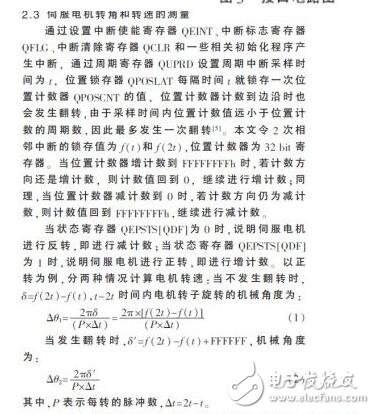 图 3  接口电路图
2.3 伺服电机转角和转速的测量
通过设置中断使能寄存器 QEINT、中断标志寄存器
QFLG、中断清除寄存器 QCLR 和一些相关初始化程序产
生中断，通过周期寄存器 QUPRD 设置周期中断采样时
间为 t，位置锁存器 QPOSLAT 每隔时间 t 就锁存一次位
置计数器 QPOSCNT 的值，位置计数器计数到边沿时也
会发生翻转，由于采样时间内位置计数值远小于位置计
数的周期数，因此最多发生一次翻转[5]。本文令 2 次相
邻中断的锁存值为 f(t)和 f(2t)，位置计数器为 32 bit 寄
存器。当位置计数器增计数到 FFFFFFFFh 时，若计数方
向还是增计数，则计数值回到 0，继续进行增计数；同
理，当位置计数器减计数到 0 时，若计数方向仍为减计
数，则计数值回到 FFFFFFFFh，继续进行减计数。
当状态寄存器 QEPSTS[QDF]为 0 时，说明伺服电机
进行反转，即进行减计数；当状态寄存器 QEPSTS[QDF]
为 1 时，说明伺服电机进行正转，即进行增计数。以正
转为例，分两种情况计算电机转速：当不发生翻转时，
δ=f(2t)-f(t)，t~2t 时间内电机转子旋转的机械角度为：
Δθ₁=2πδ/(P×Δt)=2π×[f(2t)-f(t)]/(P×Δt) (1)
当发生翻转时，δ′=f(2t)-f(t)+FFFFFF，机械角度
为：
Δθ₂=2πδ′/P×Δt
其中，P 表示每转的脉冲数，Δt=2t-t。
电子发烧友